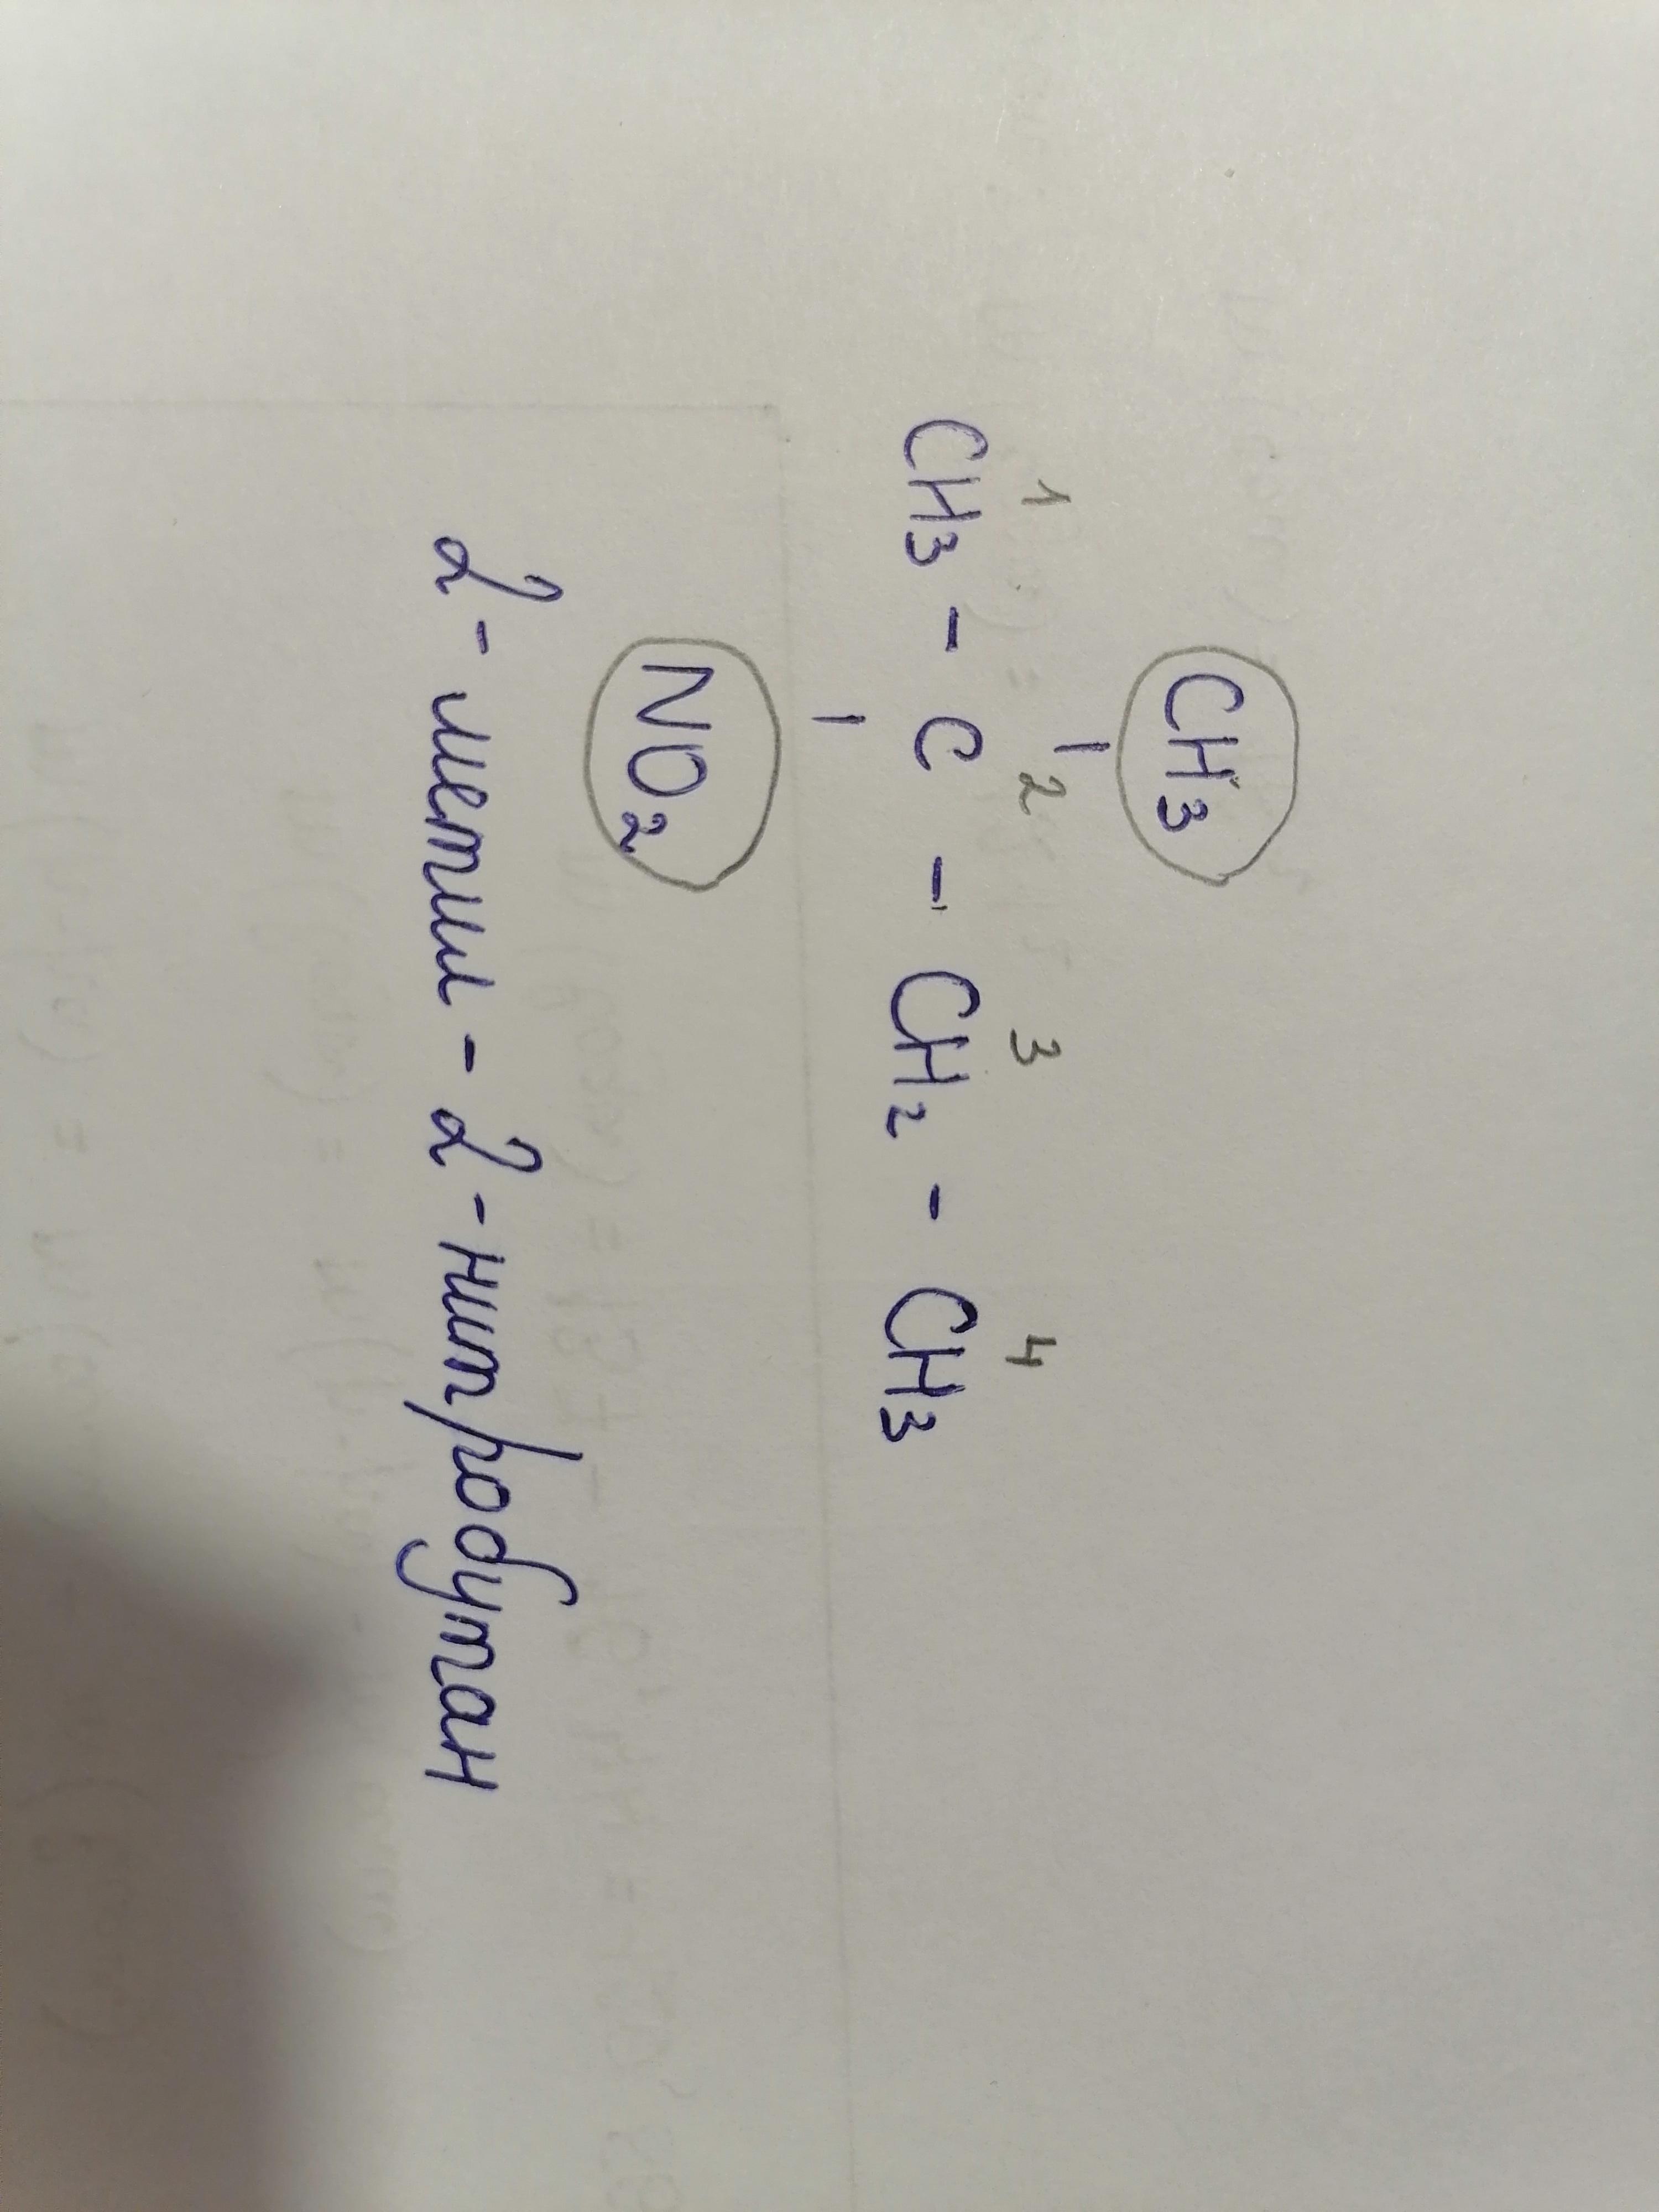 CH3
1 2 3 4
CH3 - C - CH2 - CH3
NO2
2-метил-2-нитробутан